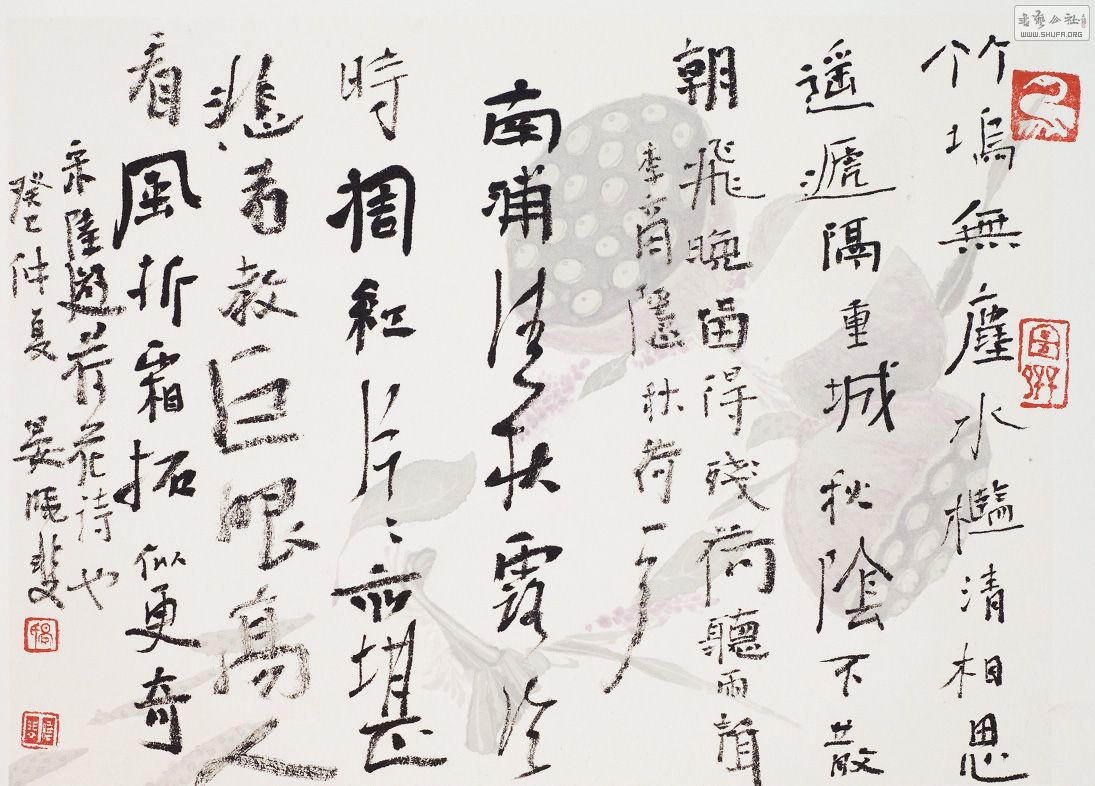 書藝公社
WWW.SHUFA.ORG
竹塢無塵水檻清相思
遥遞隔重城秋陰不散
朝飛晚留得殘荷聽雨聲
李商隱秋荷
南浦清秋露冷
時凋紅片〻亦堪
悲若教巨眼高人
看風折霜拓似更奇
宋陸遊荷花詩也
癸巳仲夏晏曉斐